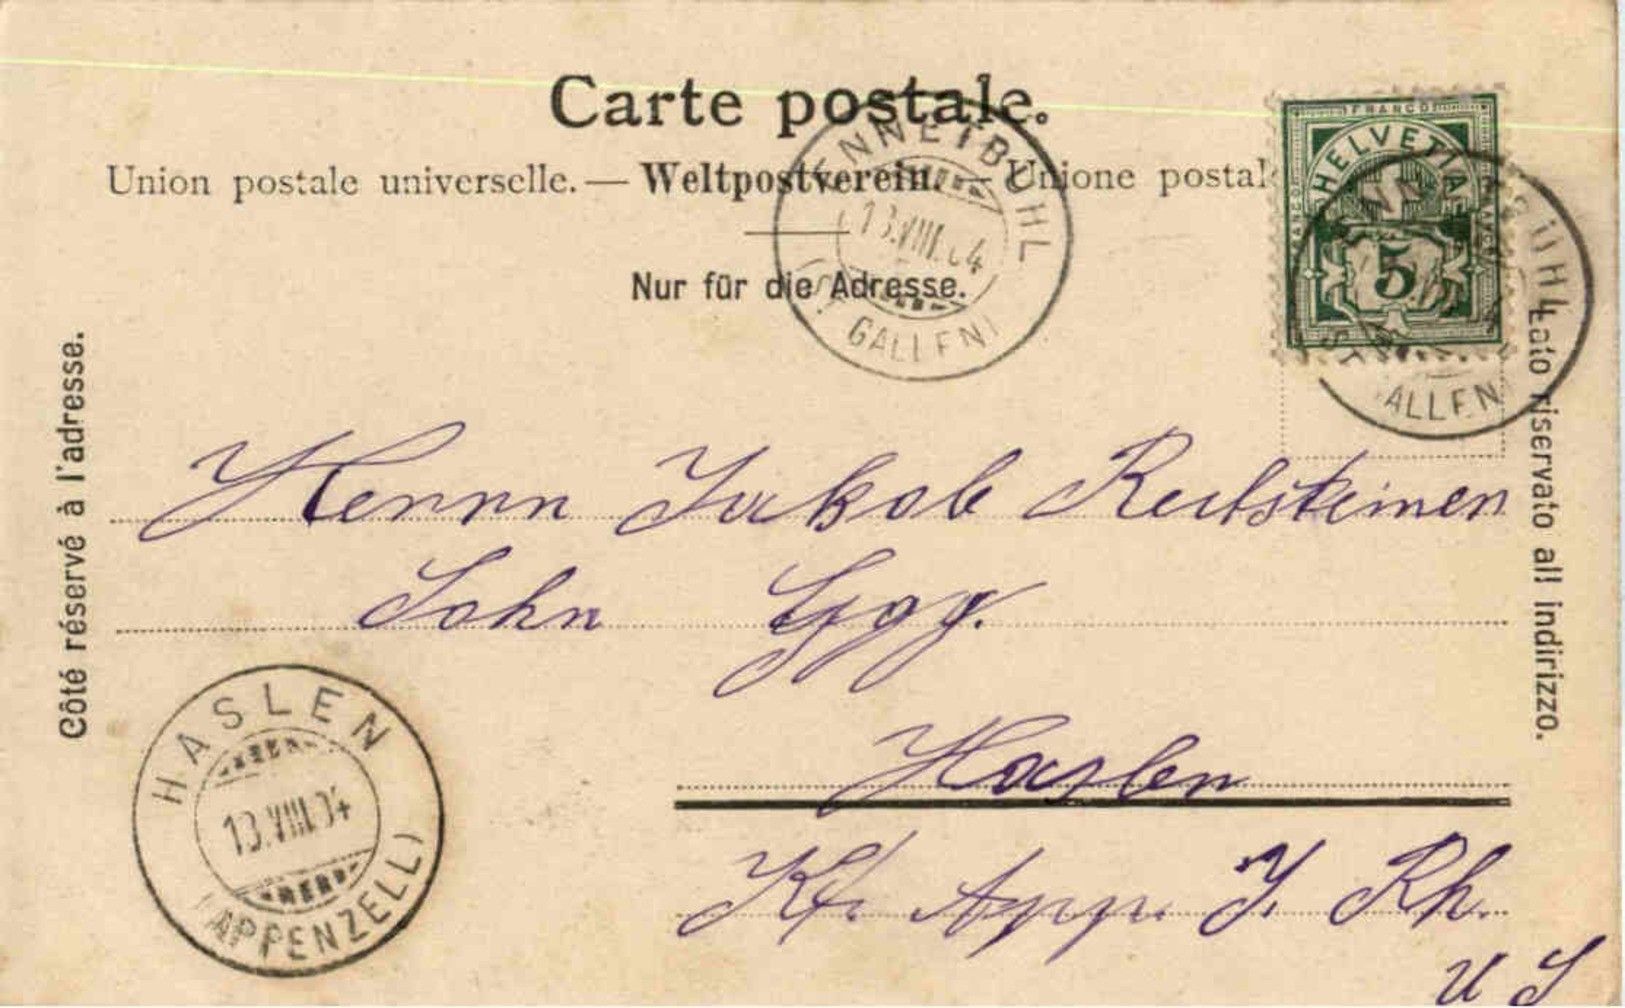 Carte postale.
Union postale universelle. — Weltpostverein. — Unione postal
Nur für die Adresse.
Côté réservé à l'adresse.
Lato riservato all indirizzo.
FRANCO
HELVETIA
5
ENNETBÜHL
13.VIII.04
(ST GALLEN)
ALLEN
Herrn Jakob
Sohn Egg.
Haslen
Kt. App. I. Rh.
HASLEN
13.VIII.04
(APPENZELL)